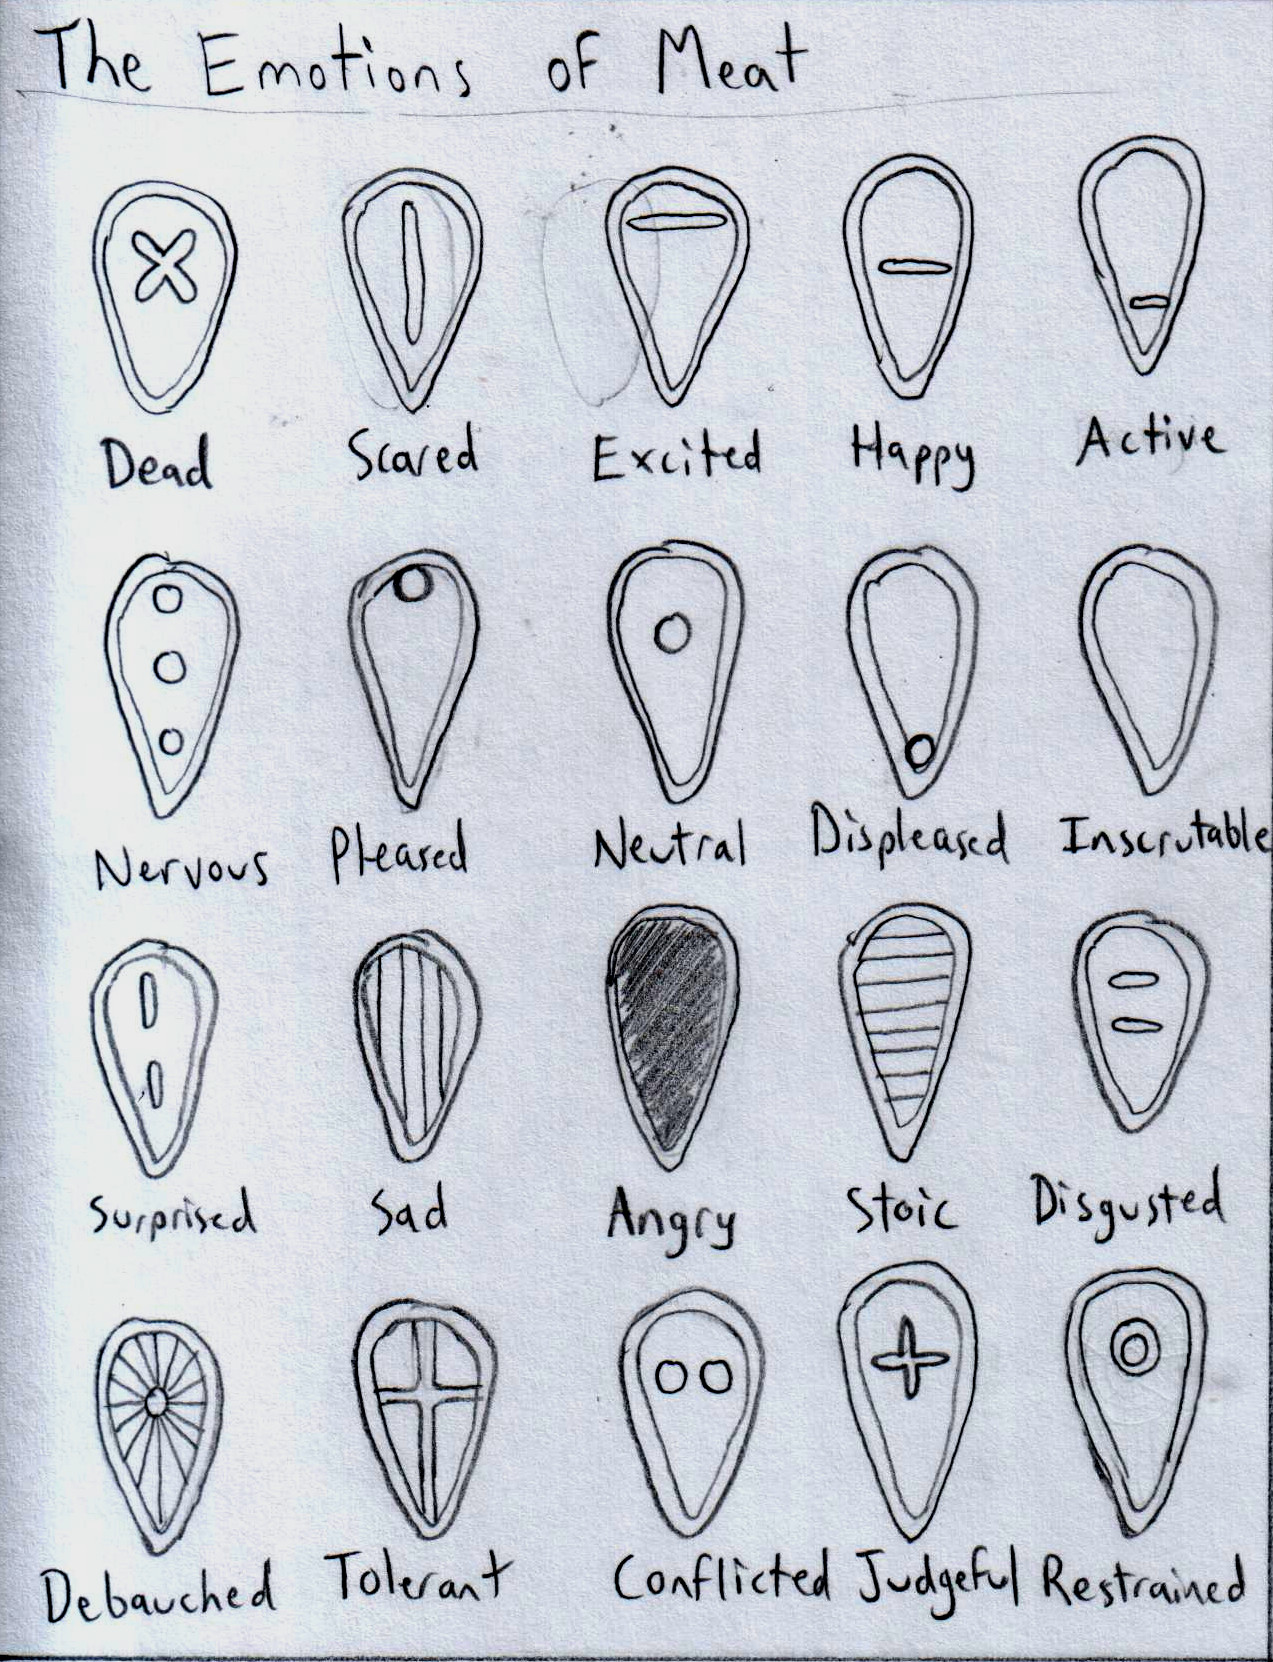 The Emotions of Meat
Dead Scared Excited Happy Active
Nervous Pleased Neutral Displeased Inscrutable
Surprised Sad Angry Stoic Disgusted
Debauched Tolerant Conflicted Judgeful Restrained